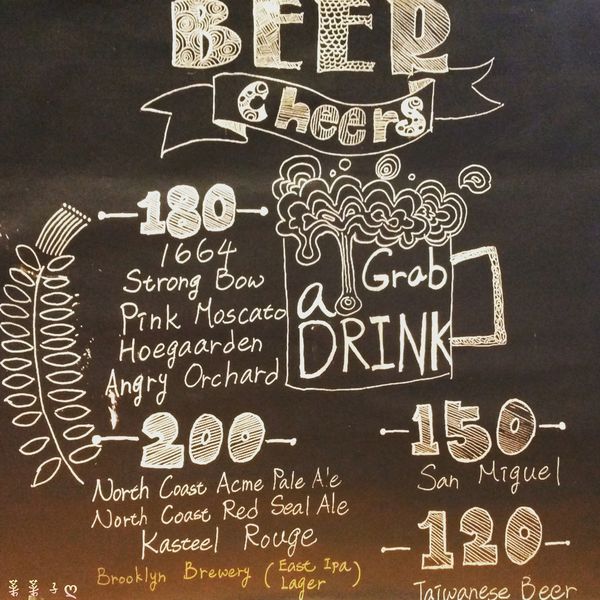 BEER
cheers
180
1664
Strong Bow
Pink Moscato
Hoegaarden
Angry Orchard
Grab
a
DRINK
200
North Coast Acme Pale Ale
North Coast Red Seal Ale
Kasteel Rouge
Brooklyn Brewery (East Ipa
Lager)
150
San Miguel
120
Taiwanese Beer